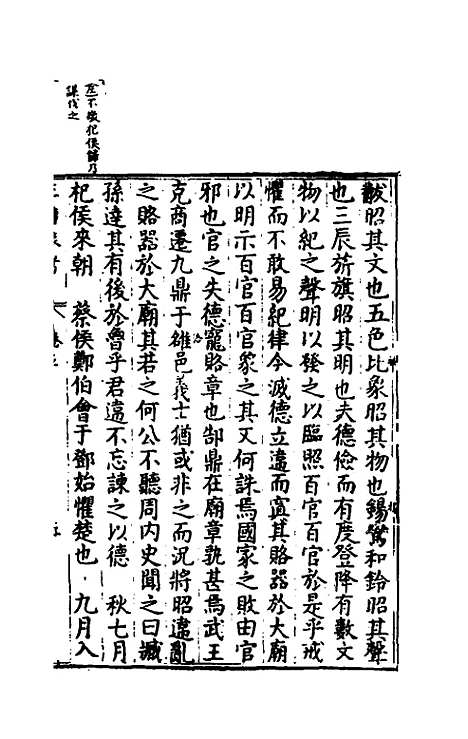 黻昭其文也五色比象昭其物也錫鸞和鈴昭其聲
也三辰旂旗昭其明也夫德儉而有度登降有數文
物以紀之聲明以發之以臨照百官百官於是乎戒
懼而不敢易紀律今滅德立違而寘其賂器於大廟
以明示百官百官象之其又何誅焉國家之敗由官
邪也官之失德寵賂章也郜鼎在廟章孰甚焉武王
克商遷九鼎于雒邑義士猶或非之而況將昭違亂
之賂器於大廟其若之何公不聽周内史聞之曰臧
孫達其有後於魯乎君違不忘諫之以德 秋七月
杞侯來朝 蔡侯鄭伯會于鄧始懼楚也 九月入
不敬杞侯歸乃
謀伐之